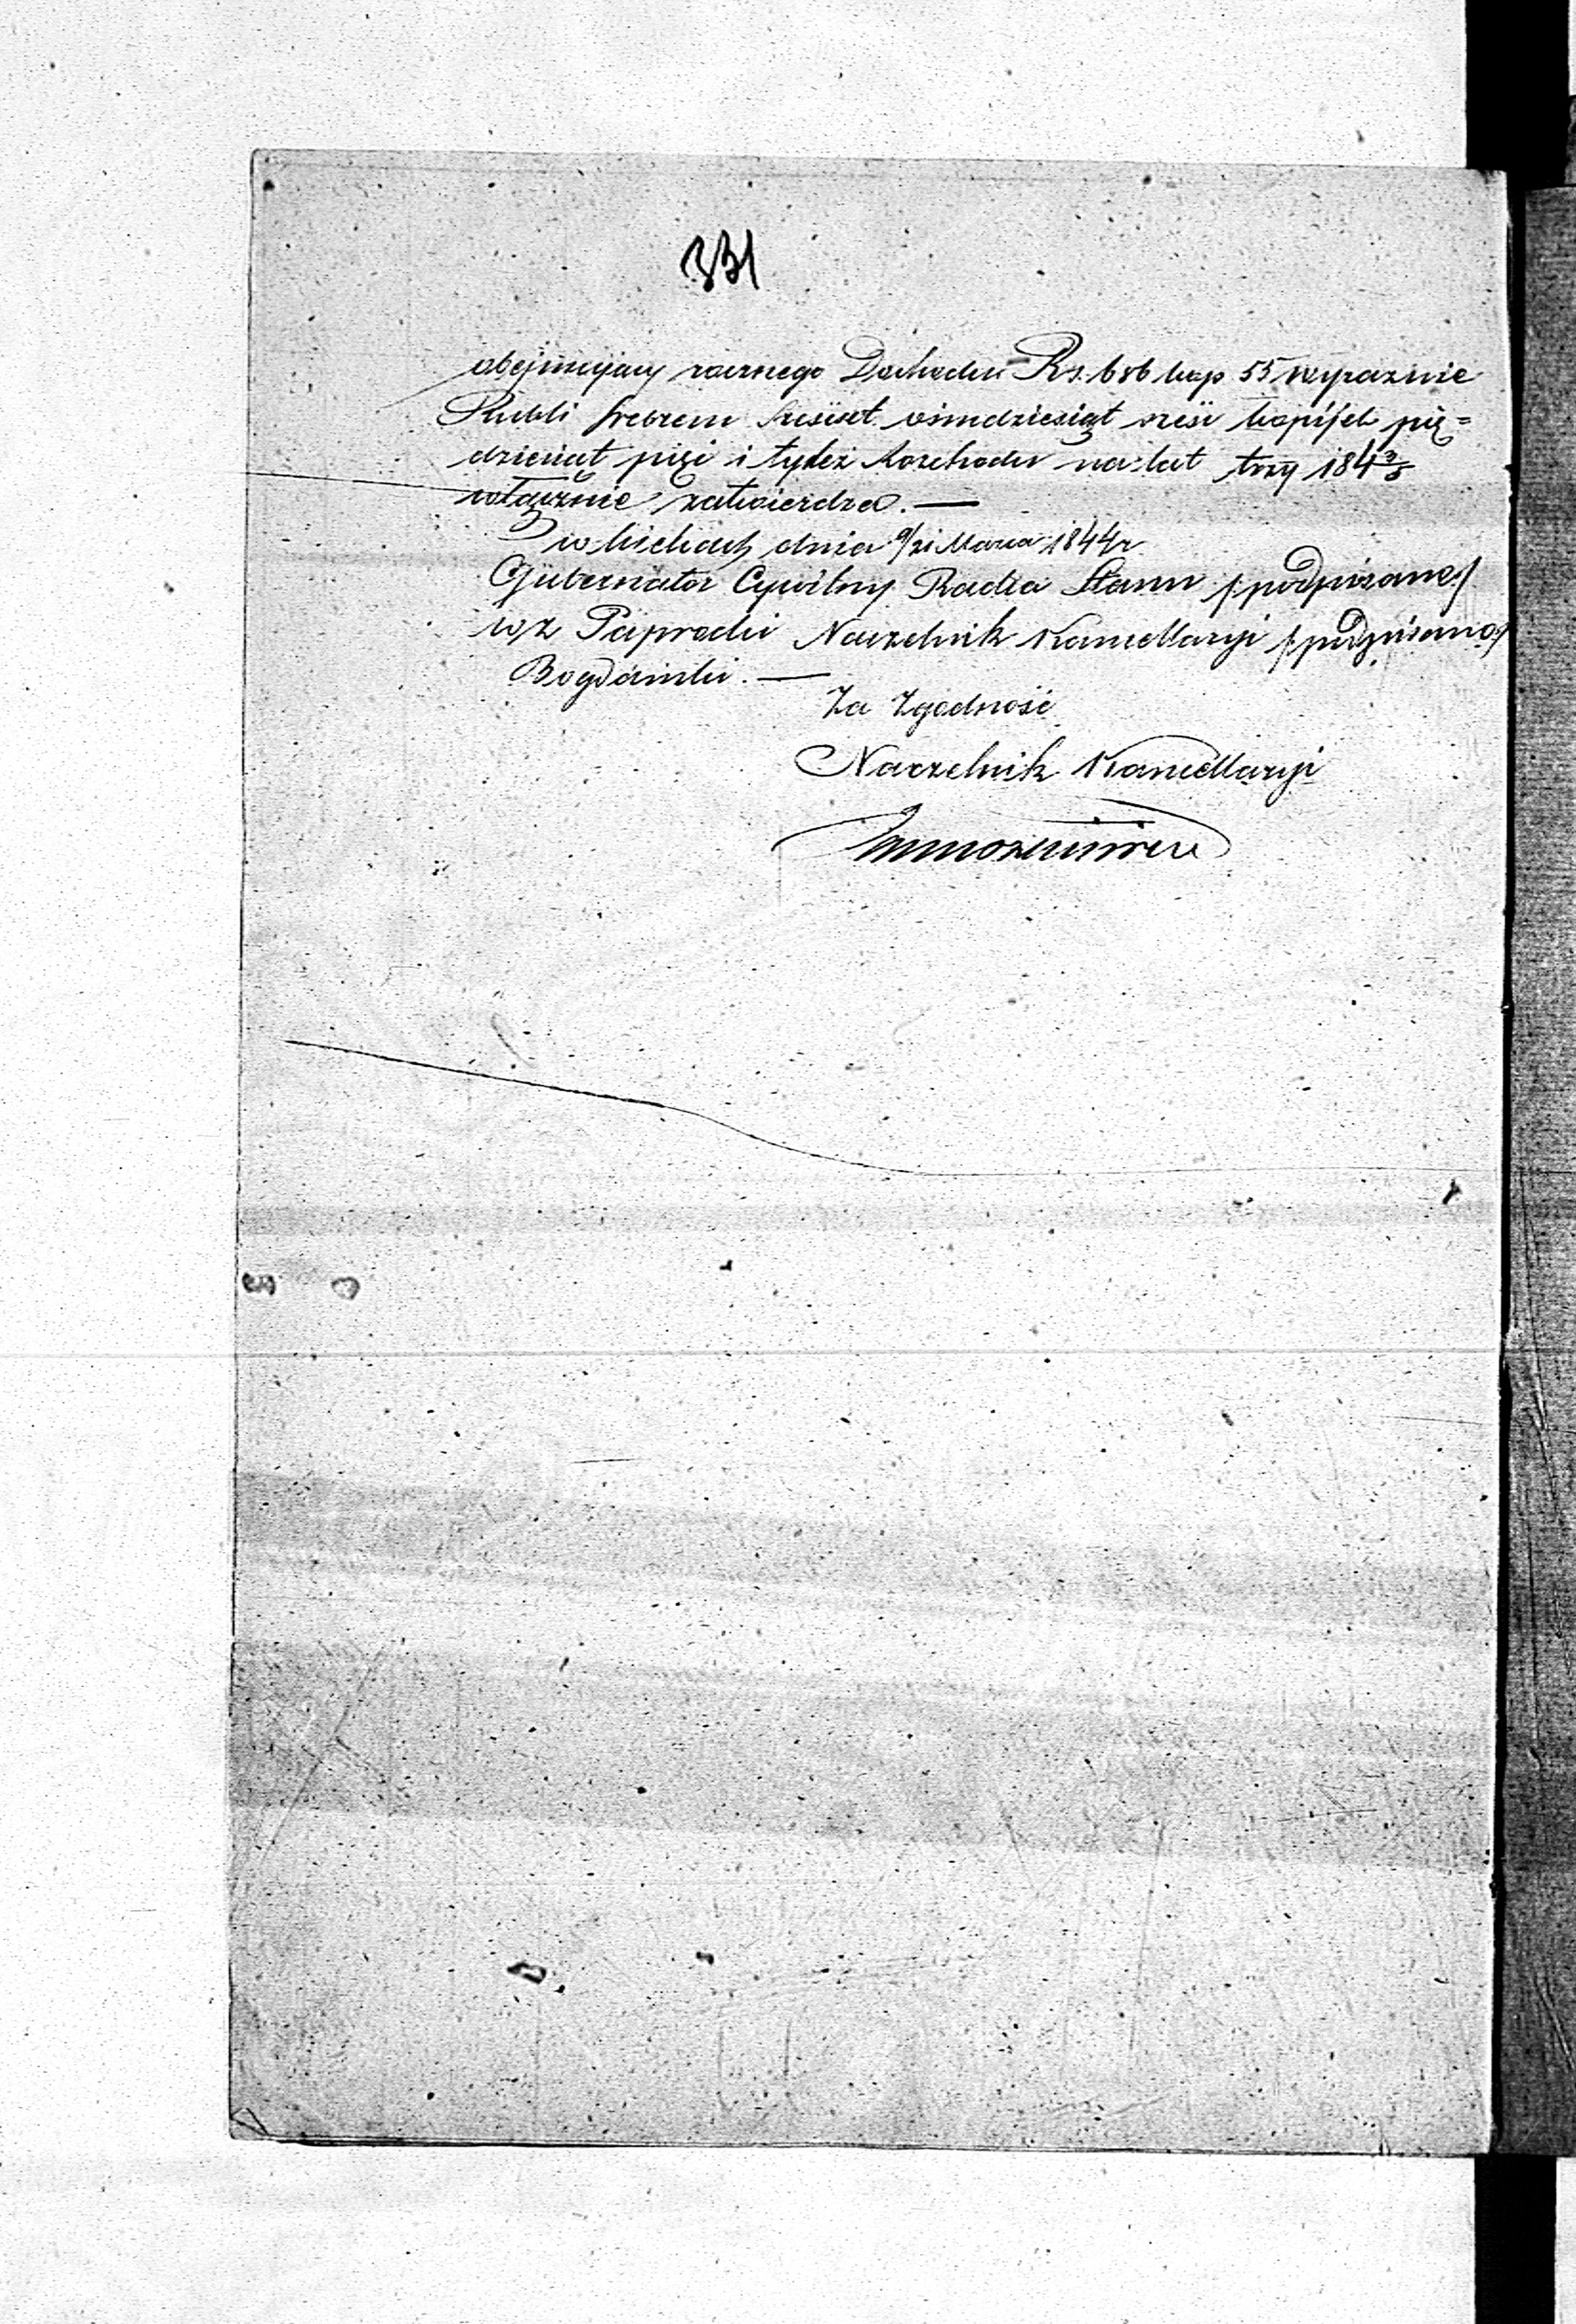 331
obejmujący rocznego Dochodu Rs. 686 kop 55 wyraźnie
Rubli srebrem sześset ośmdziesiąt sześć kopijek pię=
dziesiąt pięć i tyleż Rozchodu na lat trzy 184 3/5
włącznie zatwierdza. —
w Kielcach dnia 9/21 Marca 1844 r
Gubernator Cywilny Radca Stanu /:podpisano:/
wz Paprocki Naczelnik Kancellaryi /:podpisano:/
Bogdański. —
Za Zgodność
Naczelnik Kancellaryi